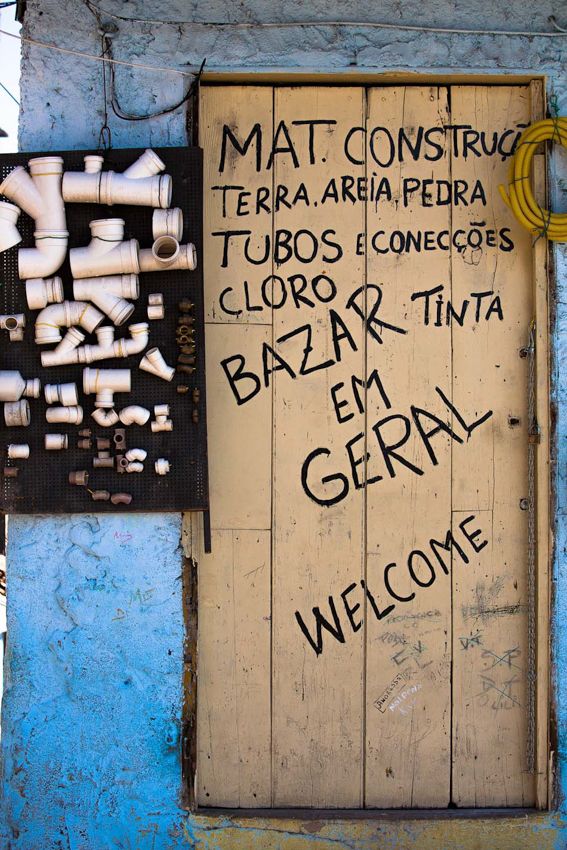 MAT. CONSTRUÇÃ
TERRA.AREIA.PEDRA
TUBOS E CONECÇÕES
CLORO
TINTA
BAZAR
EM
GERAL
WELCOME